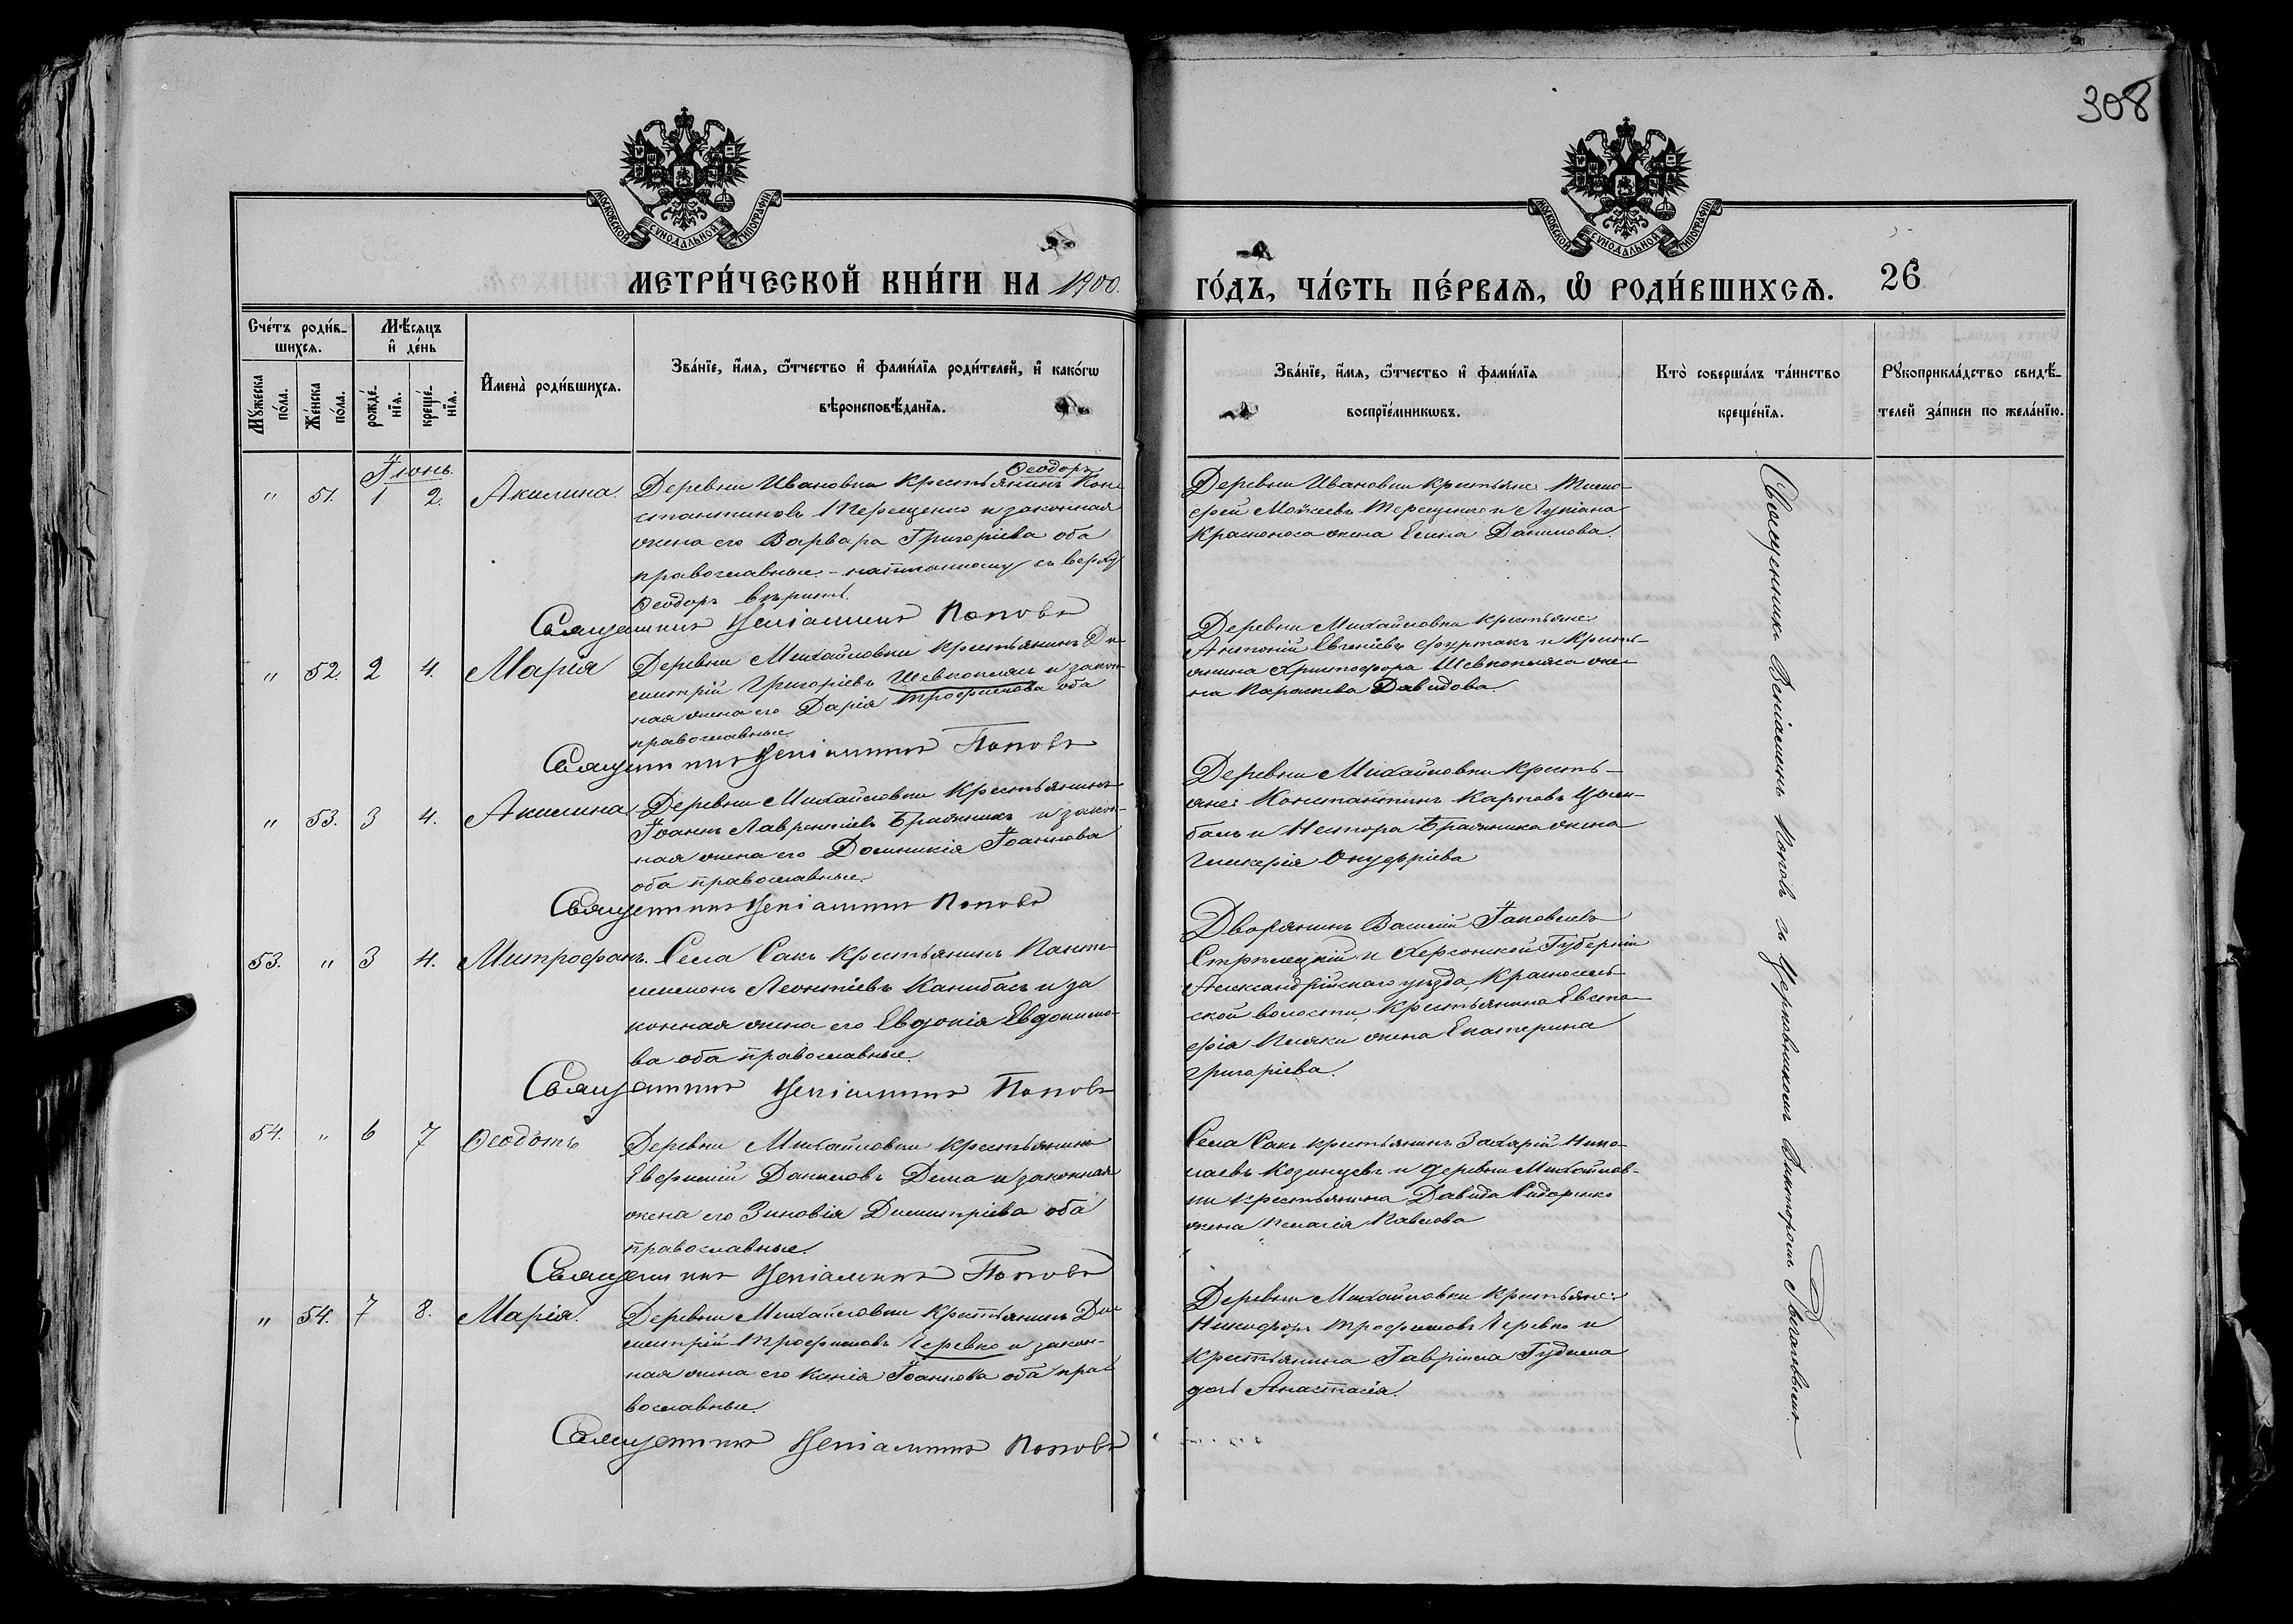 308
МОСКОВСКОЙ СУНОДАЛЬНОЙ ТИПОГРАФІИ
МОСКОВСКОЙ СУНОДАЛЬНОЙ ТИПОГРАФІИ
МЕТРИ́ЧЕСКОЙ КНИ́ГИ НА 1900.
ГО́ДЪ, ЧА́СТЬ ПЕ́РВАѦ, Ѡ РОДИ́ВШИХСѦ. 26
Сче́тъ роди́в-
шихсѧ.
Мѣ́сѧцъ
и҆ де́нь
Мꙋ́жеска
по́ла.
Же́нска
по́ла.
рожде́-
нїѧ.
креще́-
нїѧ.
И҆мена̀ роди́вшихсѧ.
Зва́нїе, и҆́мѧ, ѻ҆́тчество и҆ фами́лїѧ роди́телей, и҆ како́гѡ
вѣроисповѣ́данїѧ.
Зва́нїе, и҆́мѧ, ѻ҆́тчество и҆ фами́лїѧ
воспрїе́мникѡвъ.
Кто̀ соверша́лъ та́инство
креще́нїѧ.
Рꙋкоприкла́дство свидѣ́-
телей за́писи по жела́нїю.
Іюнь.
" 51. 1 2. Акилина.
Ѳеодоръ
Деревни Ивановки крестьянинъ Кон
стантиновъ Терещенко и законная
жена его Варвара Григоріева оба
православные. - написанному съ верху
Ѳеодоръ вѣрить.
Священникъ Веніаминъ Поповъ
Деревни Ивановки крестьяне: Тимо-
фей Мойсеевъ Терещенко и Лукіана
Красноноса жена Елена Данилова.
" 52. 2 4. Марія
Деревни Михайловки крестьянинъ Ди-
митрій Григоріевъ Шевкоплясъ и закон-
ная жена его Дарія Трофимова оба
православные.
Священникъ Веніаминъ Поповъ
Деревни Михайловки крестьяне:
Антоній Евгеніевъ Фуртакъ и кресть-
янина Христофора Шевкопляса же-
на Параскева Давидова.
" 53. 3 4. Акилина.
Деревни Михайловки крестьянинъ
Іоаннъ Лаврентіевъ Бражникъ и закон-
ная жена его Домникія Іоаннова
оба православные.
Священникъ Веніаминъ Поповъ
Деревни Михайловки кресть-
яне: Константинъ Карповъ Цым-
балъ и Нестора Бражника жена
Гликерія Онуфріева
53. " 3 4. Митрофанъ.
Села Сакъ крестьянинъ Панте-
леимонъ Леонтіевъ Канибасъ и за
конная жена его Евдокія Евдокимо-
ва оба православные.
Священникъ Веніаминъ Поповъ
Дворянинъ Василій Іаковлевъ
Стрѣлецкій и Херсонской Губерніи
Александрійскаго уѣзда, Красносель-
ской волости, крестьянина Евста-
фія Пляки жена Екатерина
Григоріева.
54. " 6 7 Ѳеодотъ
Деревни Михайловки крестьянинъ
Евфимій Даниловъ Дема и законная
жена его Зиновія Димитріева оба
православные.
Священникъ Веніаминъ Поповъ
Села Сакъ крестьянинъ Захарій Нико-
лаевъ Козинцевъ и деревни Михайлов-
ки крестьянина Давида Сидоренко
жена Пелагія Павлова
" 54. 7 8. Марія.
Деревни Михайловки крестьянинъ Ди
митрій Трофимовъ Черевко и закон-
ная жена его Ксенія Іоаннова оба пра
вославные.
Священникъ Веніаминъ Поповъ
Деревни Михайловки крестьяне:
Никифоръ Трофимовъ Черевко и
крестьянина Гавріила Гудыма
дочь Анастасія.
Священникъ Веніаминъ Поповъ съ Церковникомъ Викторомъ